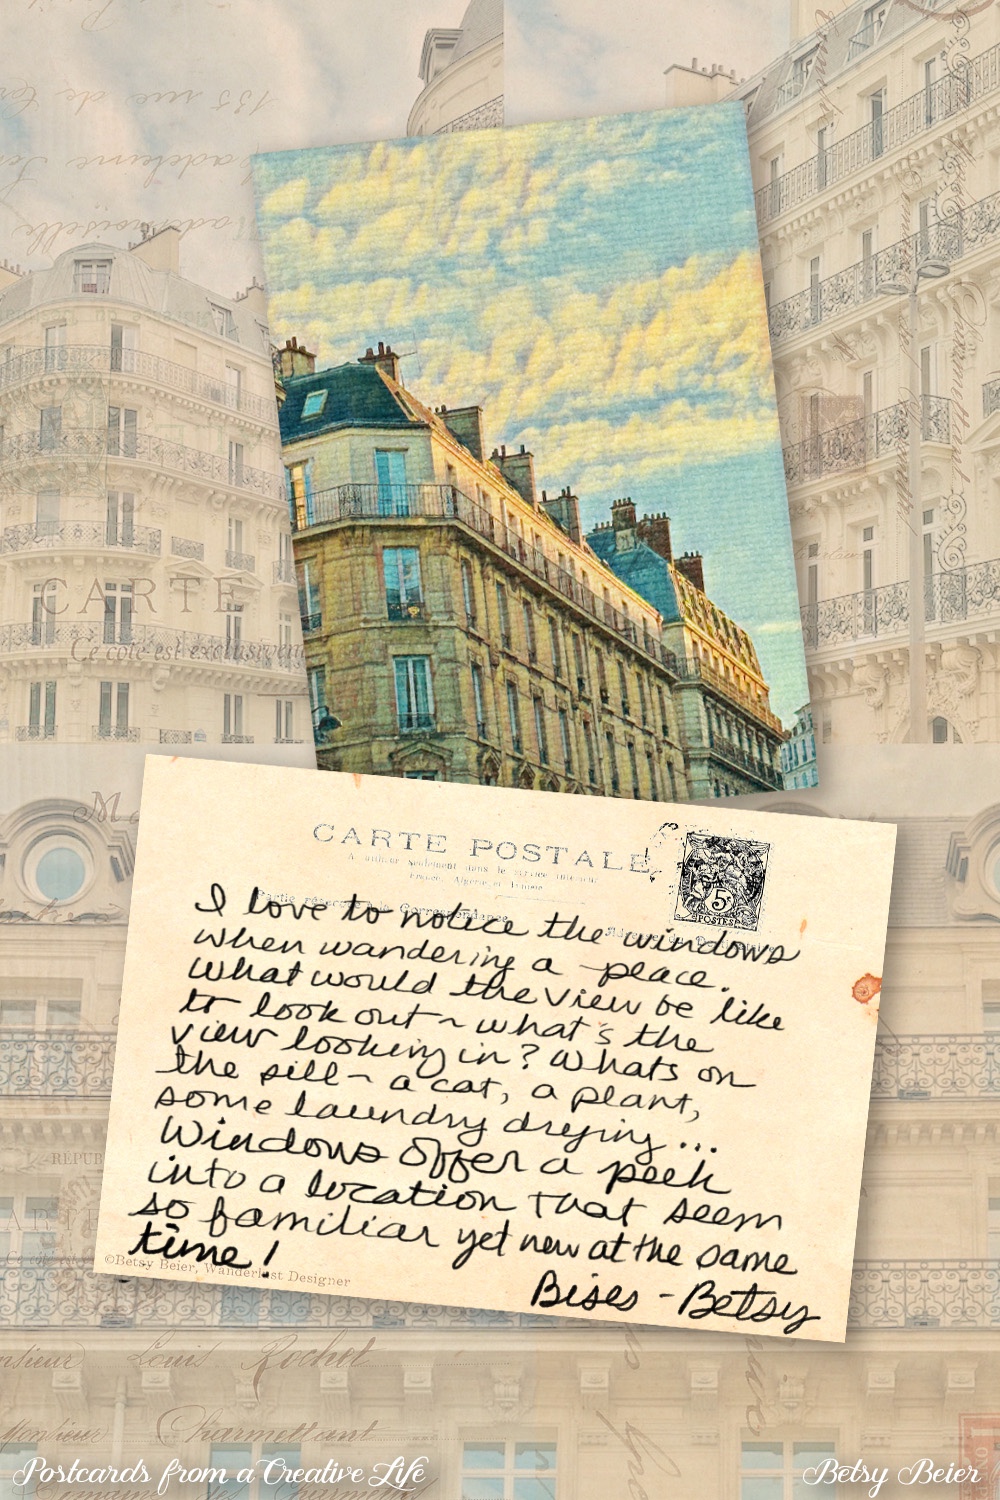 135 rue de
Mademoiselle
CARTE
Ce côté est exclusivem
CARTE POSTALE
France, Algérie et Tunisie
Partie réservée à la Correspondance
5c
POSTES
I love to notice the windows
when wandering a place.
What would the view be like
to look out ~ what's the
view looking in? Whats on
the sill ~ a cat, a plant,
some laundry drying ...
Windows offer a peek
into a location that seem
so familiar yet new at the same
time!
©Betsy Beier, Wanderlust Designer
Bises - Betsy
Louis Rochet
Monsieur Charmettant
Postcards from a Creative Life
Betsy Beier